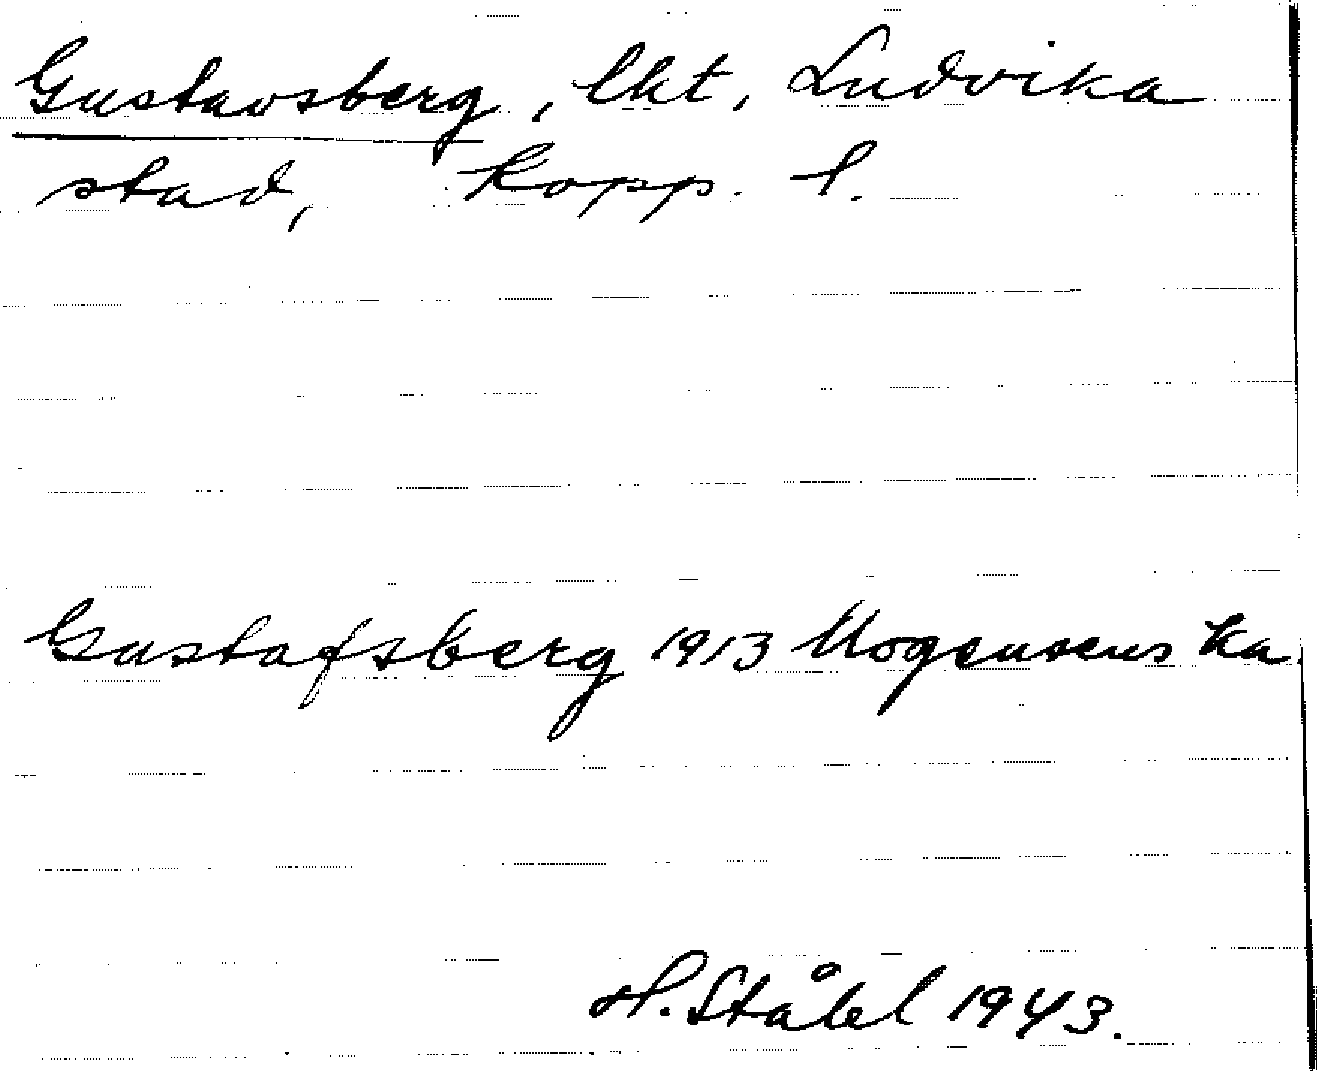 Gustavsberg, lht, Ludvika
stad, Kopp. l.
Gustafsberg 1913 Mogensens ka.
H. Ståhl 1943.